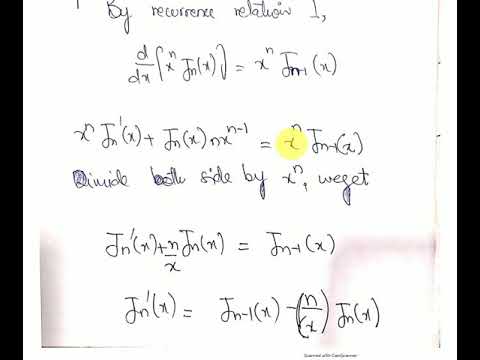 By recurrence relation 1,
d/dx [xⁿ Jₙ(x)] = xⁿ Jₙ₋₁(x)
xⁿ Jₙ'(x) + Jₙ(x) nxⁿ⁻¹ = xⁿ Jₙ₋₁(x)
Divide both side by xⁿ, we get
Jₙ'(x) + n/x Jₙ(x) = Jₙ₋₁(x)
Jₙ'(x) = Jₙ₋₁(x) - (n/x) Jₙ(x)
Scanned with CamScanner